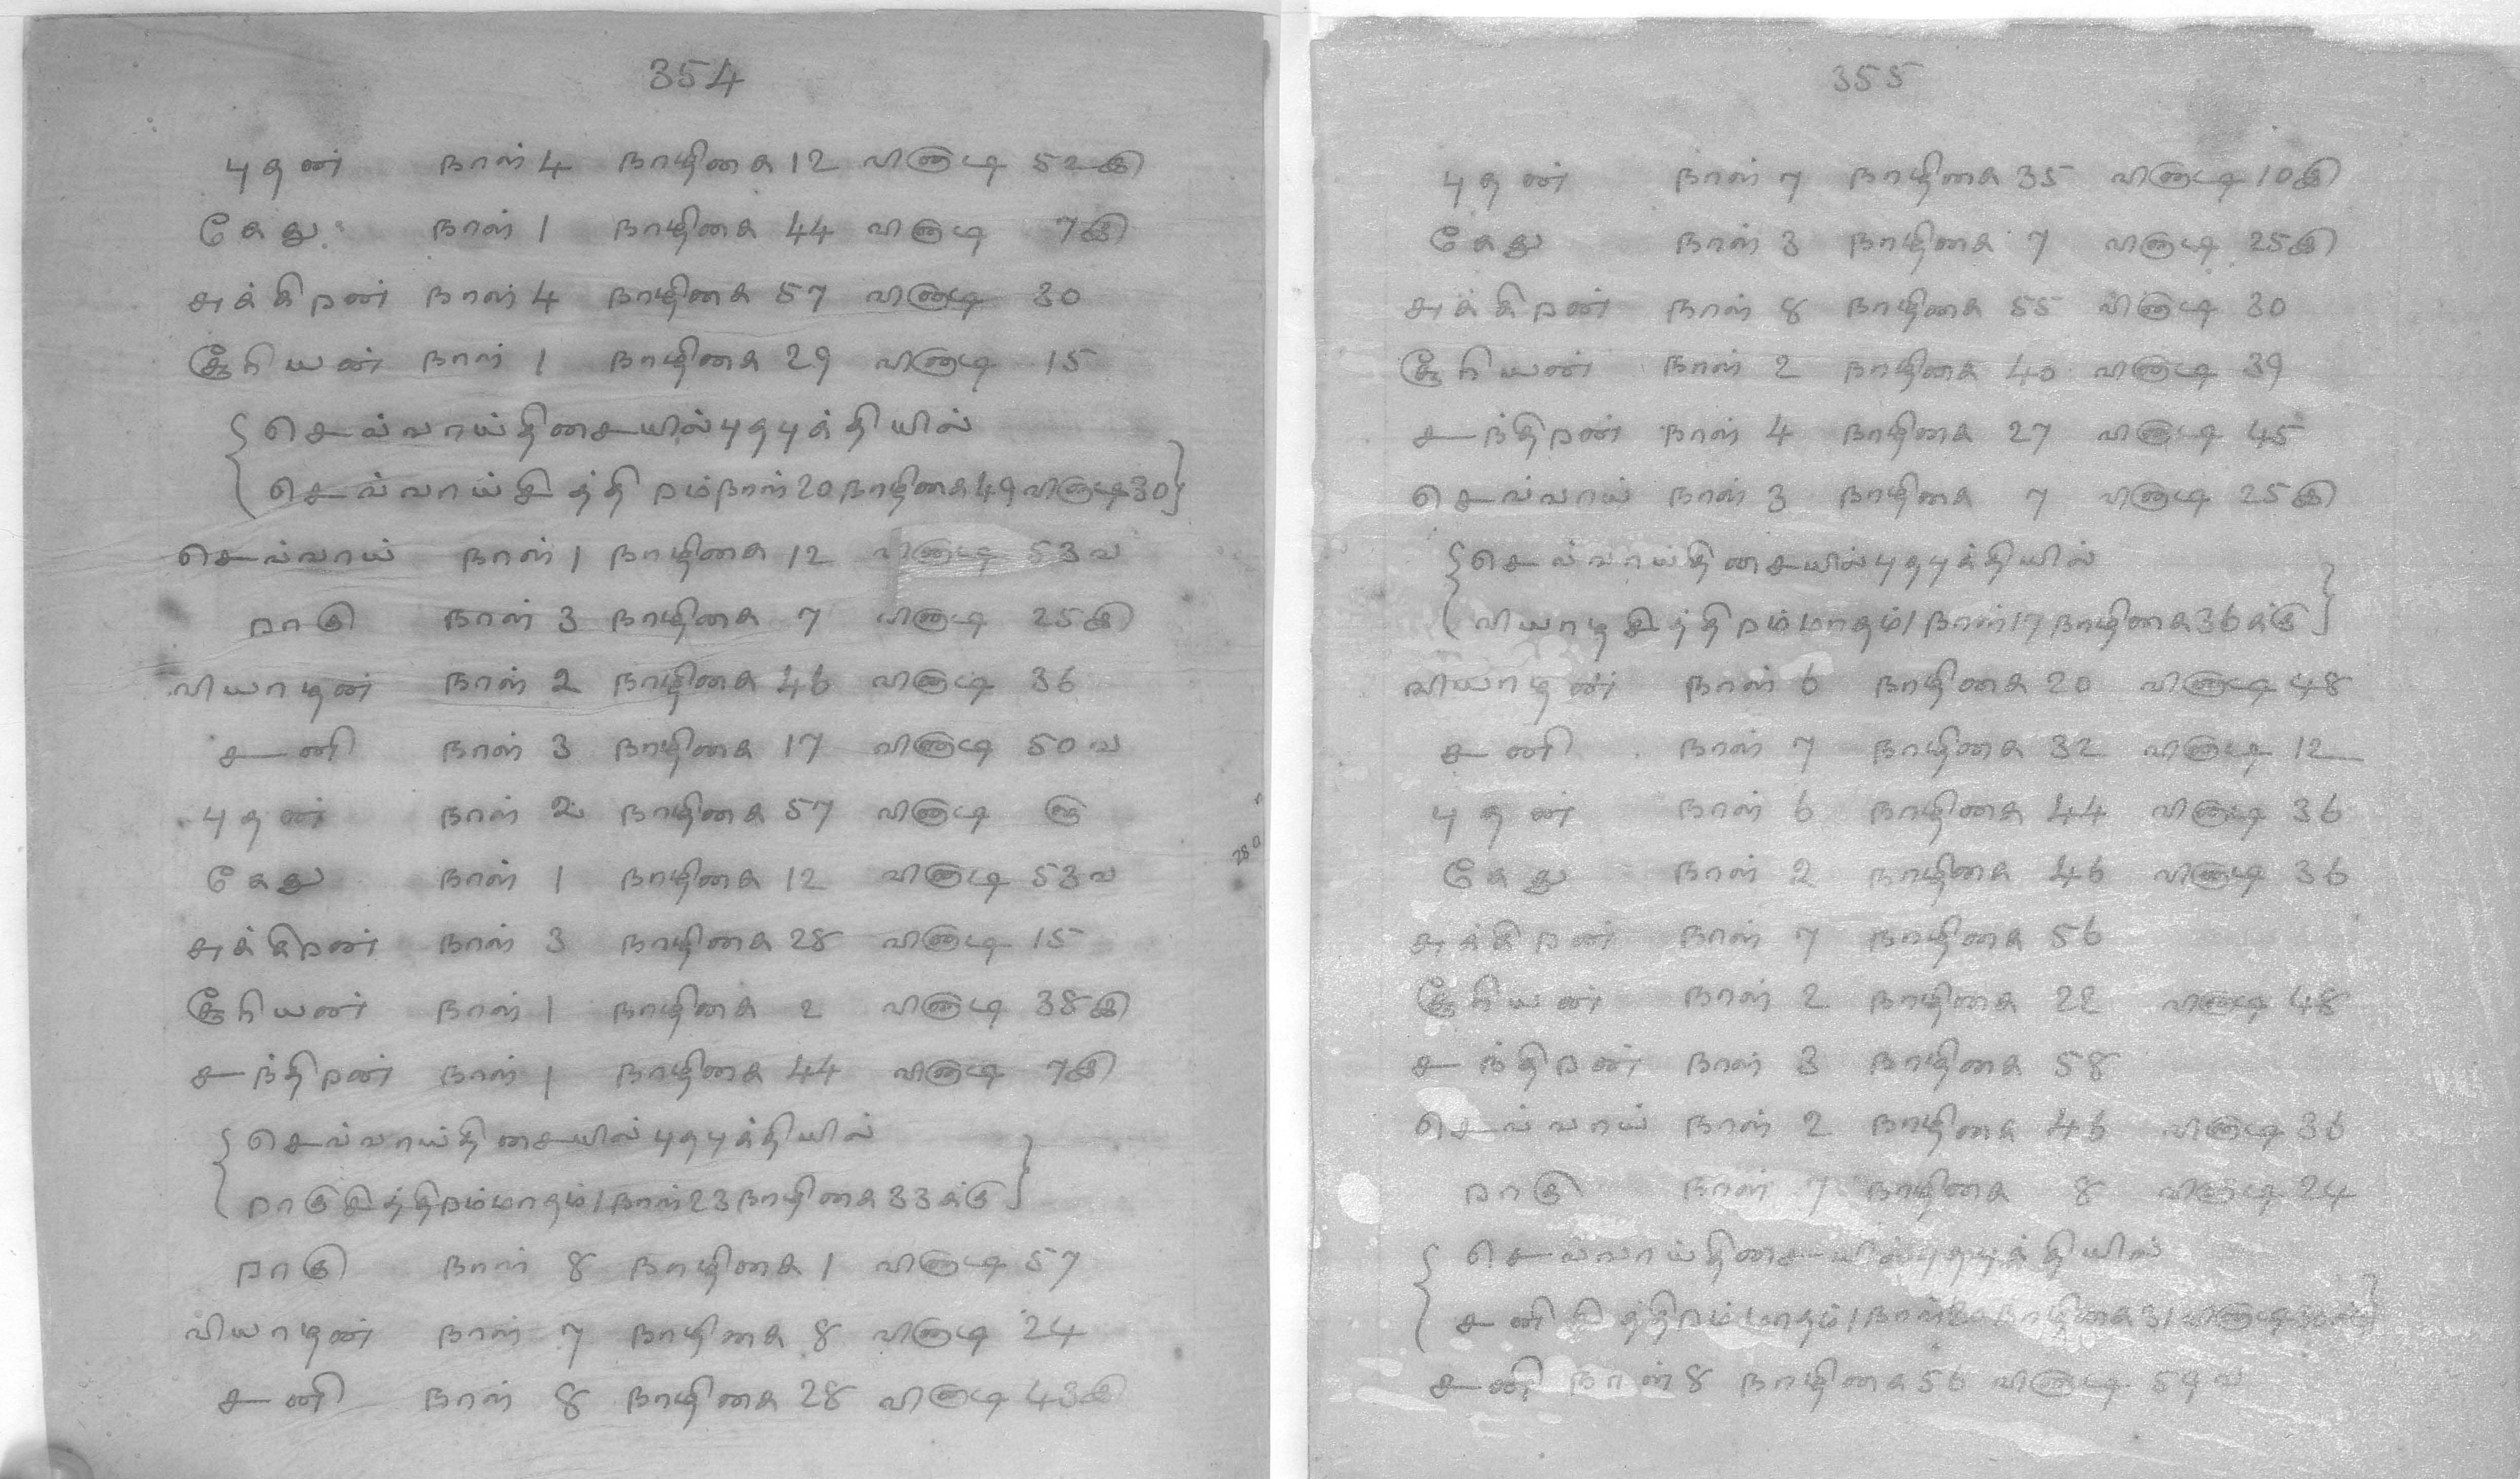 354
புதன் நாள் 4 நாழிகை 12 வினாடி 52இ
கேது நாள் 1 நாழிகை 44 வினாடி 7இ
சுக்கிரன் நாள் 4 நாழிகை 57 வினாடி 30
சூரியன் நாள் 1 நாழிகை 29 வினாடி 15
{செவ்வாய்திசையில்புதபுக்தியில்
செவ்வாய்சித்திரம்நாள்20நாழிகை49வினாடி30}
செவ்வாய் நாள் 1 நாழிகை 12 வினாடி 53வ
ராகு நாள் 3 நாழிகை 7 வினாடி 25இ
வியாழன் நாள் 2 நாழிகை 46 வினாடி 36
சனி நாள் 3 நாழிகை 17 வினாடி 50வ
புதன் நாள் 2 நாழிகை 57 வினாடி
கேது நாள் 1 நாழிகை 12 வினாடி 53வ
சுக்கிரன் நாள் 3 நாழிகை 28 வினாடி 15
சூரியன் நாள் 1 நாழிகை 2 வினாடி 38இ
சந்திரன் நாள் 1 நாழிகை 44 வினாடி 7இ
{செவ்வாய்திசையில்புதபுக்தியில்
ராகுசித்திரம்மாதம்1நாள்23நாழிகை33க்கு}
ராகு நாள் 8 நாழிகை 1 வினாடி 57
வியாழன் நாள் 7 நாழிகை 8 வினாடி 24
சனி நாள் 8 நாழிகை 28 வினாடி 43இ
355
புதன் நாள் 7 நாழிகை 35 வினாடி 10இ
கேது நாள் 3 நாழிகை 7 வினாடி 25இ
சுக்கிரன் நாள் 8 நாழிகை 55 வினாடி 30
சூரியன் நாள் 2 நாழிகை 40 வினாடி 39
சந்திரன் நாள் 4 நாழிகை 27 வினாடி 45
செவ்வாய் நாள் 3 நாழிகை 7 வினாடி 25இ
{செவ்வாய்திசையில்புதபுக்தியில்
வியாழசித்திரம்மாதம்1நாள்17நாழிகை36க்கு}
வியாழன் நாள் 6 நாழிகை 20 வினாடி 48
சனி நாள் 7 நாழிகை 32 வினாடி 12
புதன் நாள் 6 நாழிகை 44 வினாடி 36
கேது நாள் 2 நாழிகை 46 வினாடி 36
சுக்கிரன் நாள் 7 நாழிகை 56
சூரியன் நாள் 2 நாழிகை 22 வினாடி 48
சந்திரன் நாள் 3 நாழிகை 58
செவ்வாய் நாள் 2 நாழிகை 46 வினாடி 36
ராகு நாள் 7 நாழிகை 8 வினாடி 24
{செவ்வாய்திசையில்புதபுக்தியில்
சனிசித்திரம்மாதம்1நாள் நாழிகை31வினாடி30க்கு}
சனி நாள் 8 நாழிகை 56 வினாடி 59வ